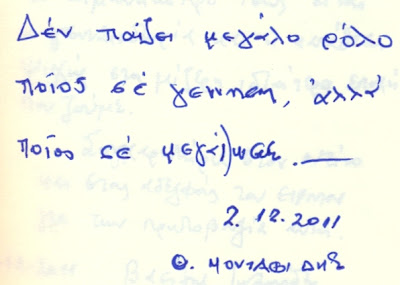 Δέν παίζει μεγάλο ρόλο
ποῖος σέ γεννησε, ἀλλά
ποῖος σέ μεγάλωσε.
2.12.2011
Θ. ΜΟΝΤΑΦΙΔΗΣ